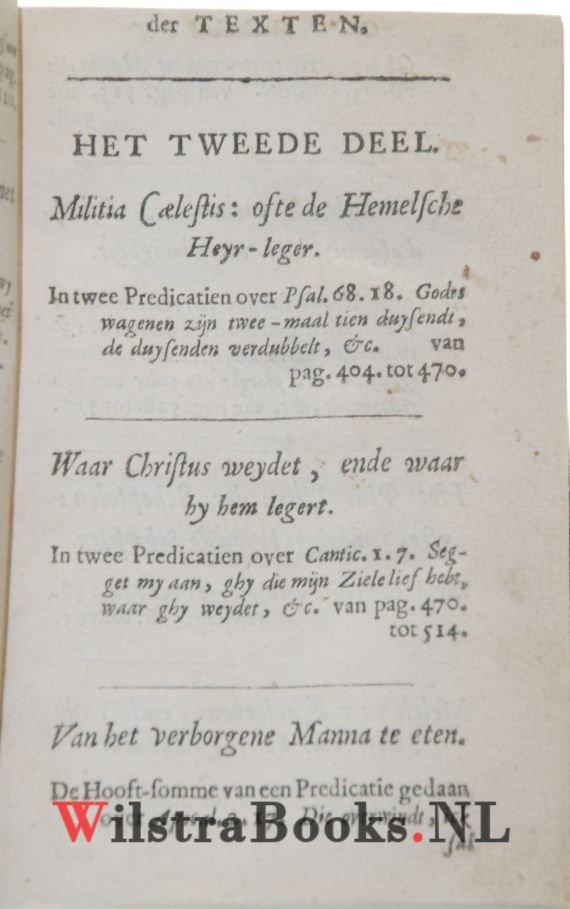 der TEXTEN.
HET TWEEDE DEEL.
Militia Cæleſtis: ofte de Hemelſche
Heyr-leger.
In twee Predicatien over Pſal. 68. 18. Godes
wagenen zijn twee-maal tien duyſendt,
de duyſenden verdubbelt, &c. van
pag. 404. tot 470.
Waar Chriſtus weydet, ende waar
hy hem legert.
In twee Predicatien over Cantic. 1. 7. Seg-
get my aan, ghy die mijn Ziele lief hebt,
waar ghy weydet, &c. van pag. 470.
tot 514.
Van het verborgene Manna te eten.
De Hooft-ſomme van een Predicatie gedaan
over Apocal. 2. 17. Die overwindt,
ſal
WilstraBooks.NL